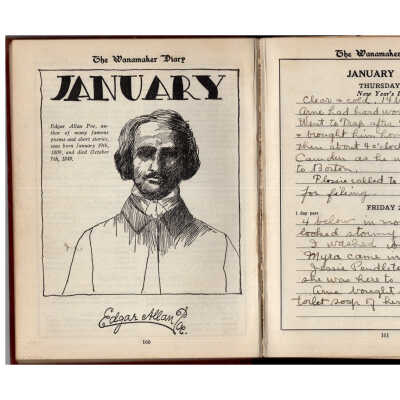 The Wanamaker Diary
JANUARY
Edgar Allan Poe, au-
thor of many famous
poems and short stories,
was born January 19th,
1809, and died October
7th, 1849.
Edgar Allan Poe
160
The Wanamaker
JANUARY
THURSDAY
New Year's
Clear & cold. 14 b
Arne had hard wor
Went to Trap after
& brought him hom
then about 4 o'clock
Camden as he w
to Boston.
Flossie called to
for filing.
FRIDAY 2
1 day past
4 below in mo
looked stormy
I washed
Myra came in
Jessie Pendlet
she was here to
Arne bought
toilet soap of her
161